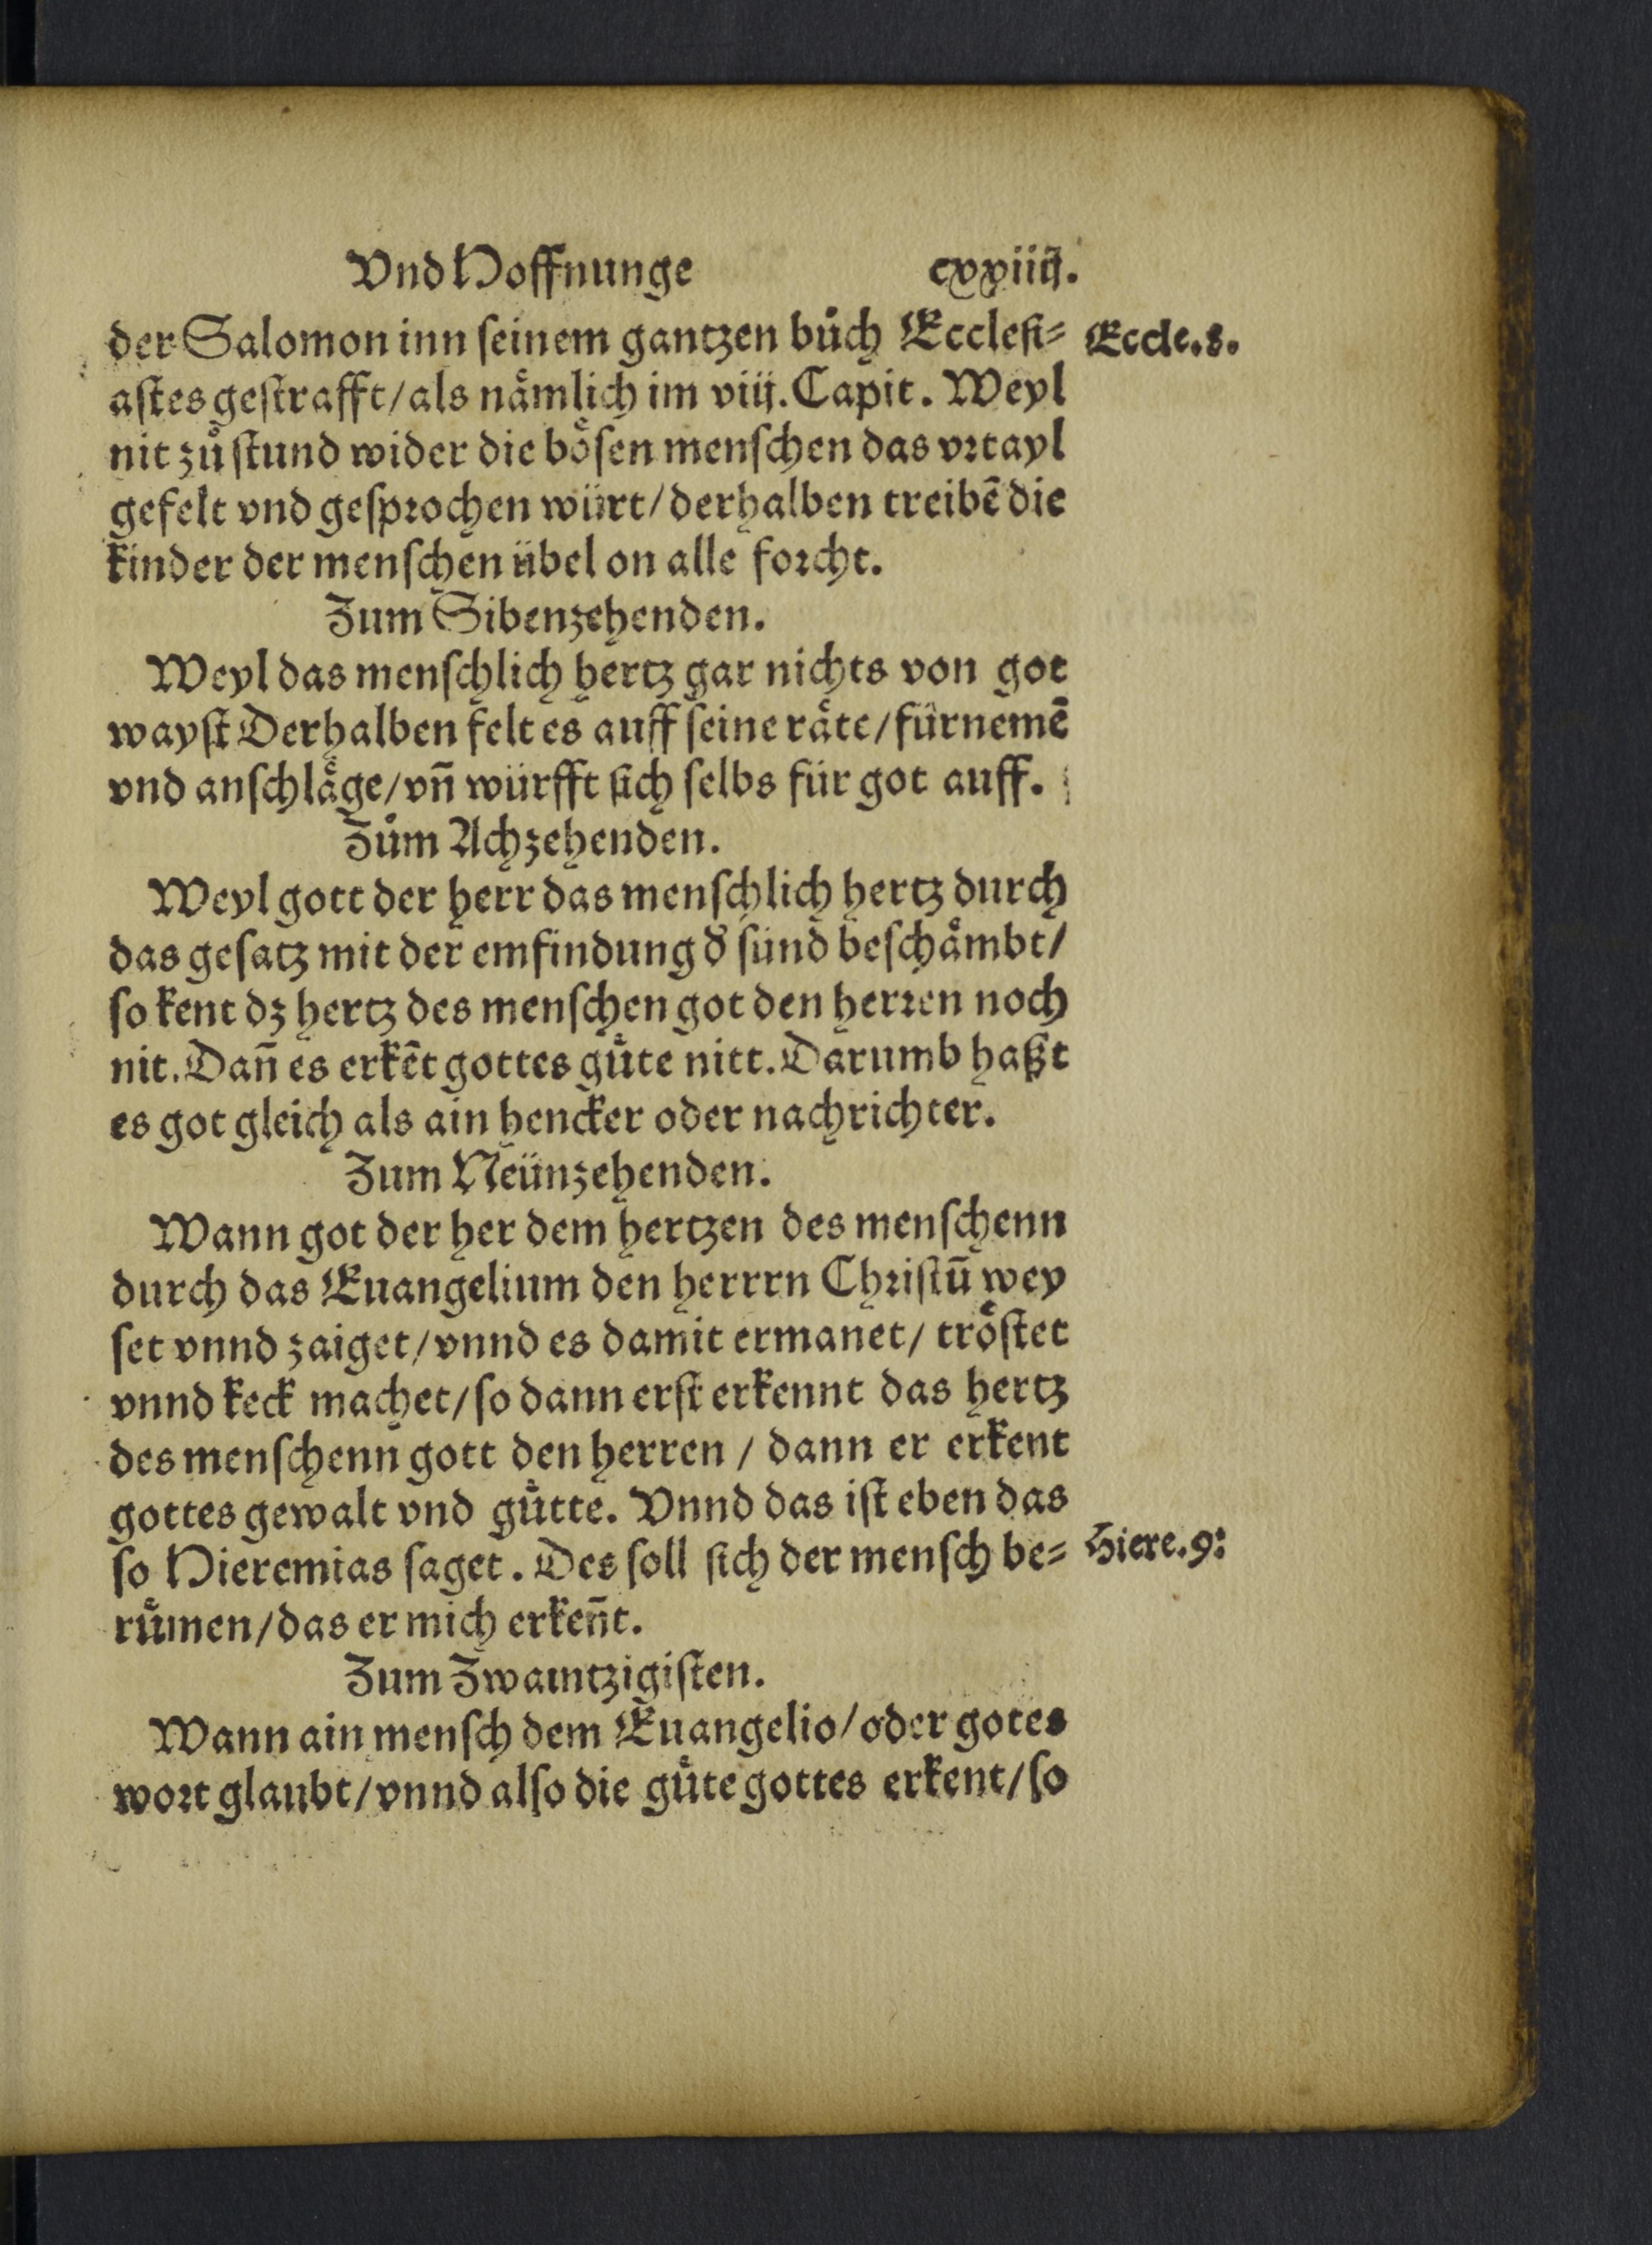 Vnd Hoffnunge cxxiiij.
der Salomon inn ſeinem gantzen bůch Eccleſi⸗ Eccle.8.
aſtes geſtrafft/als nåmlich im viij. Capit. Weyl
nit zů ſtund wider die böſen menſchen das vꝛtayl
gefelt vnd geſpꝛochen würt/derhalben treibē die
kinder der menſchen übel on alle foꝛcht.
Zum Sibenzehenden.
Weyl das menſchlich hertz gar nichts von got
wayſt Derhalben felt es auff ſeine råte/fürnemē
vnd anſchlåge/vñ würfft ſich ſelbs für got auff.
Zům Achzehenden.
Weyl gott der herr das menſchlich hertz durch
das geſatz mit der emfindung ď ſünd beſchåmbt/
ſo kent dz hertz des menſchen got den herꝛen noch
nit. Dañ es erkēt gottes gůte nitt. Darumb haßt
es got gleich als ain hencker oder nachrichter.
Zum Neünzehenden.
Wann got der her dem hertzen des menſchenn
durch das Euangelium den herrrn Chꝛiſtū wey
ſet vnnd zaiget/vnnd es damit ermanet/ tröſtet
vnnd keck machet/ſo dann erſt erkennt das hertz
des menſchenn gott den herren / dann er erkent
gottes gewalt vnd gůtte. Vnnd das iſt eben das
ſo Hieremias ſaget. Des ſoll ſich der menſch be⸗ Hiere.9:
růmen/das er mich erkeñt.
Zum Zwaintzigiſten.
Wann ain menſch dem Euangelio/oder gotes
woꝛt glaubt/vnnd alſo die gůte gottes erkent/ſo